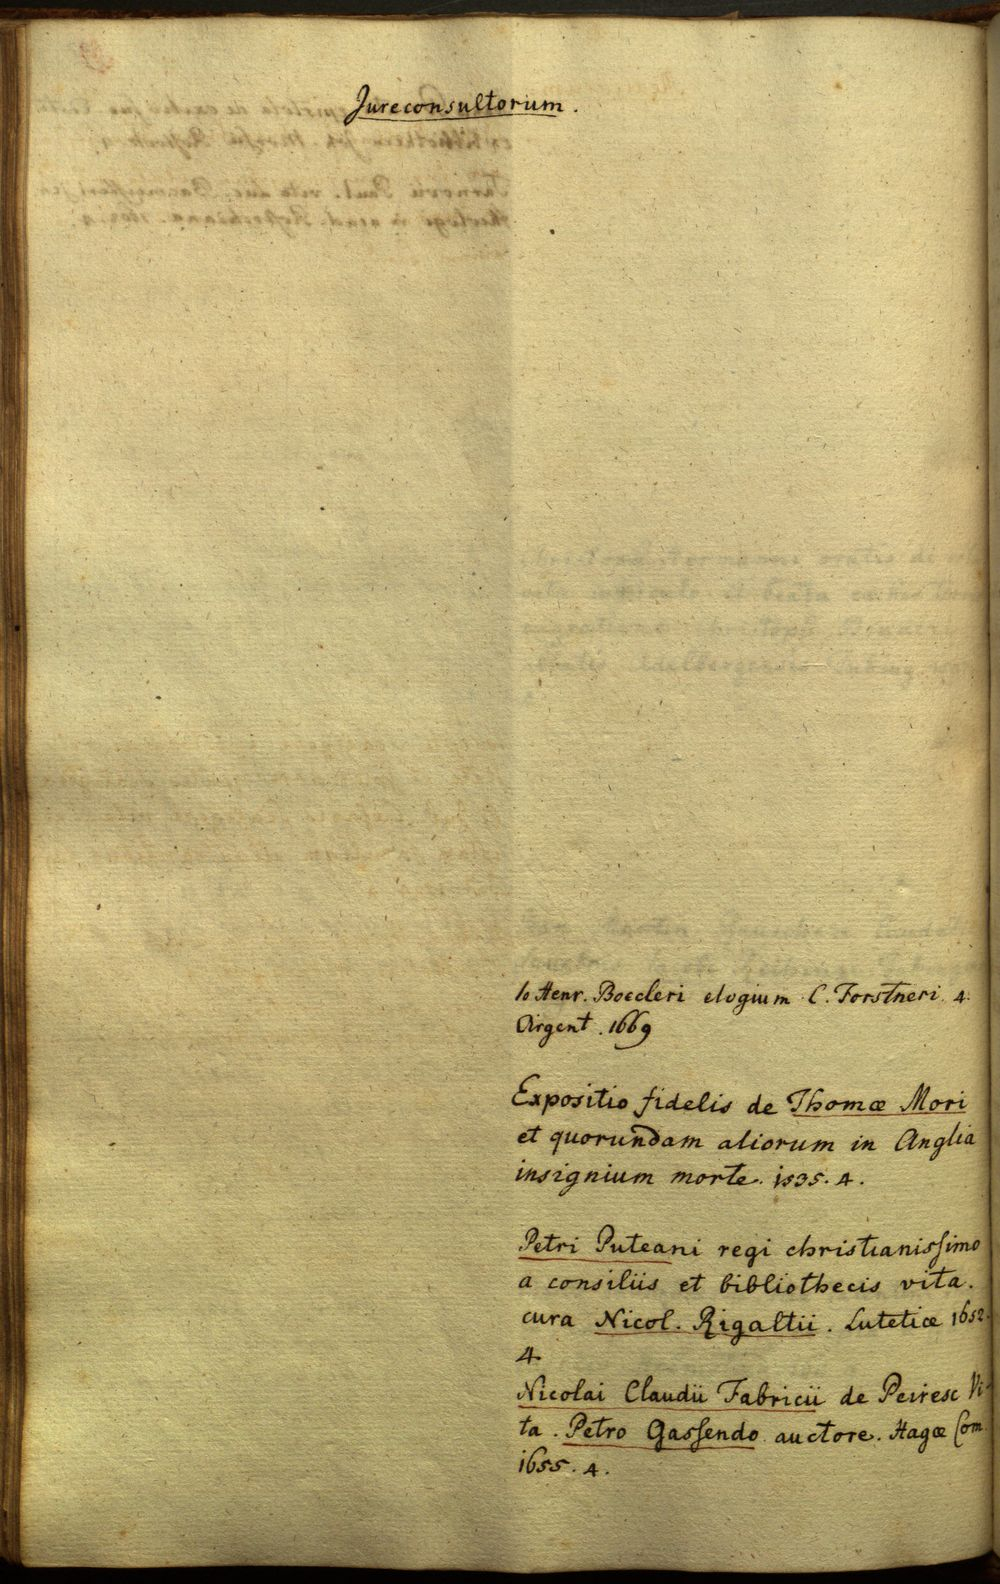 Jureconsultorum.
Io Henr. Boecleri elogium C. Forstneri. 4.
Argent. 1669
Expositio fidelis de Thomæ Mori
et quorundam aliorum in Anglia
insignium morte. 1535. 4.
Petri Puteani regi christianissimo
a consiliis et bibliothecis vita.
cura Nicol. Rigaltii. Lutetiæ 1652.
4
Nicolai Claudii Fabricii de Peiresc Vi-
ta. Petro Gassendo auctore. Hagæ Com.
1655. 4.